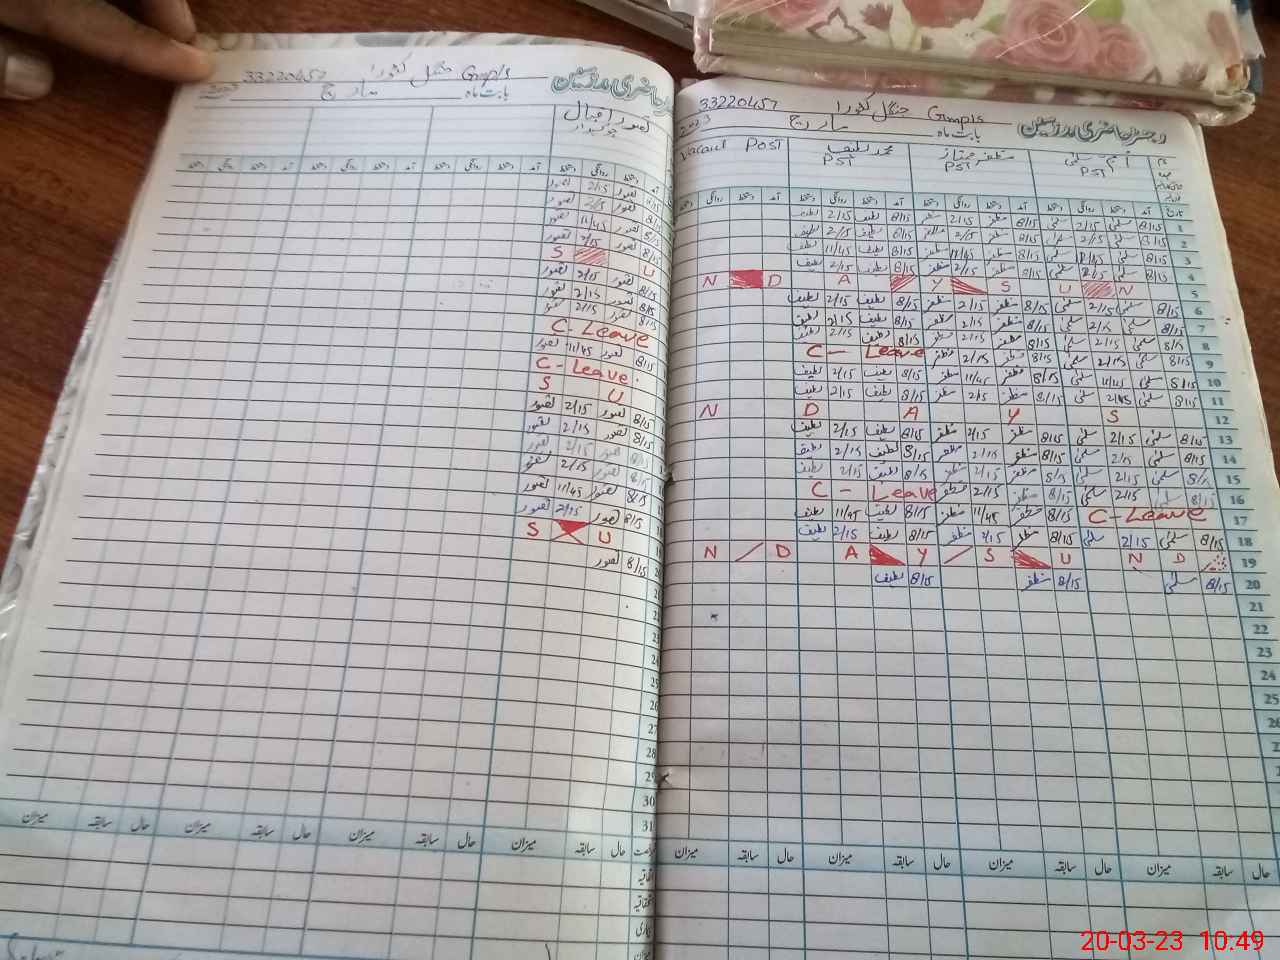 رجسٹر حاضری مدرسین
33220457 جنگل کٹورا Gmpls
بابت ماہ مارچ 2023
Vacant Post
محمد لطیف PST
مظفر ممتاز PST
سلمی PST
تاریخ
آمد دستخط روانگی دستخط آمد دستخط روانگی دستخط آمد دستخط روانگی دستخط آمد دستخط روانگی دستخط
1 8/15 سلمی 2/15 سلمی 8/15 مظفر 2/15 مظفر 8/15 لطیف 2/15 لطیف
2 8/15 سلمی 2/15 سلمی 8/15 مظفر 2/15 مظفر 8/15 لطیف 2/15 لطیف
3 8/15 سلمی 11/45 سلمی 8/15 مظفر 11/45 مظفر 8/15 لطیف 11/45 لطیف
4 8/15 سلمی 2/15 سلمی 8/15 مظفر 2/15 مظفر 8/15 لطیف 2/15 لطیف
N D A Y S U N 5
6 8/15 سلمی 2/15 سلمی 8/15 مظفر 2/15 مظفر 8/15 لطیف 2/15 لطیف
7 8/15 سلمی 2/15 سلمی 8/15 مظفر 2/15 مظفر 8/15 لطیف 2/15 لطیف
8 8/15 سلمی 2/15 سلمی 8/15 مظفر 2/15 مظفر 8/15 لطیف 2/15 لطیف
9 8/15 سلمی 2/15 سلمی 8/15 مظفر 2/15 مظفر C- Leave
10 8/15 سلمی 11/45 سلمی 8/15 مظفر 11/45 مظفر 8/15 لطیف 2/15 لطیف
11 8/15 سلمی 2/45 سلمی 8/15 مظفر 2/15 مظفر 8/15 لطیف 2/15 لطیف
N D A Y S 12
13 8/15 سلمی 2/15 سلمی 8/15 مظفر 2/15 مظفر 8/15 لطیف 2/15 لطیف
14 8/15 سلمی 2/15 سلمی 8/15 مظفر 2/15 مظفر 8/15 لطیف 2/15 لطیف
15 8/15 سلمی 2/15 سلمی 8/15 مظفر 2/15 مظفر 8/15 لطیف 2/15 لطیف
16 8/15 سلمی 2/15 سلمی 8/15 مظفر 2/15 مظفر C- Leave
17 C-Leave 8/15 مظفر 11/45 مظفر 8/15 لطیف 11/45 لطیف
18 8/15 سلمی 2/15 سلمی 8/15 مظفر 2/15 مظفر 8/15 لطیف 2/15 لطیف
N D A Y S U N D 19
20 8/15 سلمی 8/15 مظفر 8/15 لطیف
21
22
23
24
25
26
حال سابقہ میزان حال سابقہ میزان حال سابقہ میزان حال سابقہ میزان
رجسٹر حاضری مدرسین
33220457 جنگل کٹورا Gmpls
بابت ماہ مارچ
چوکیدار
آمد دستخط روانگی دستخط آمد دستخط روانگی دستخط آمد دستخط روانگی دستخط آمد دستخط روانگی دستخط
2/15
8/15 2/15
8/15 11/45
8/15 2/15
S U
8/15 2/15
8/15 2/15
8/15 2/15
C-Leave
8/15 11/45
C-Leave
S U
8/15 2/15
8/15 2/15
8/15 2/15
8/15 2/15
8/15 11/45
8/15 2/15
S U
8/15
28
29
30
31
حال سابقہ میزان حال سابقہ میزان حال سابقہ میزان حال سابقہ میزان
20-03-23 10:49